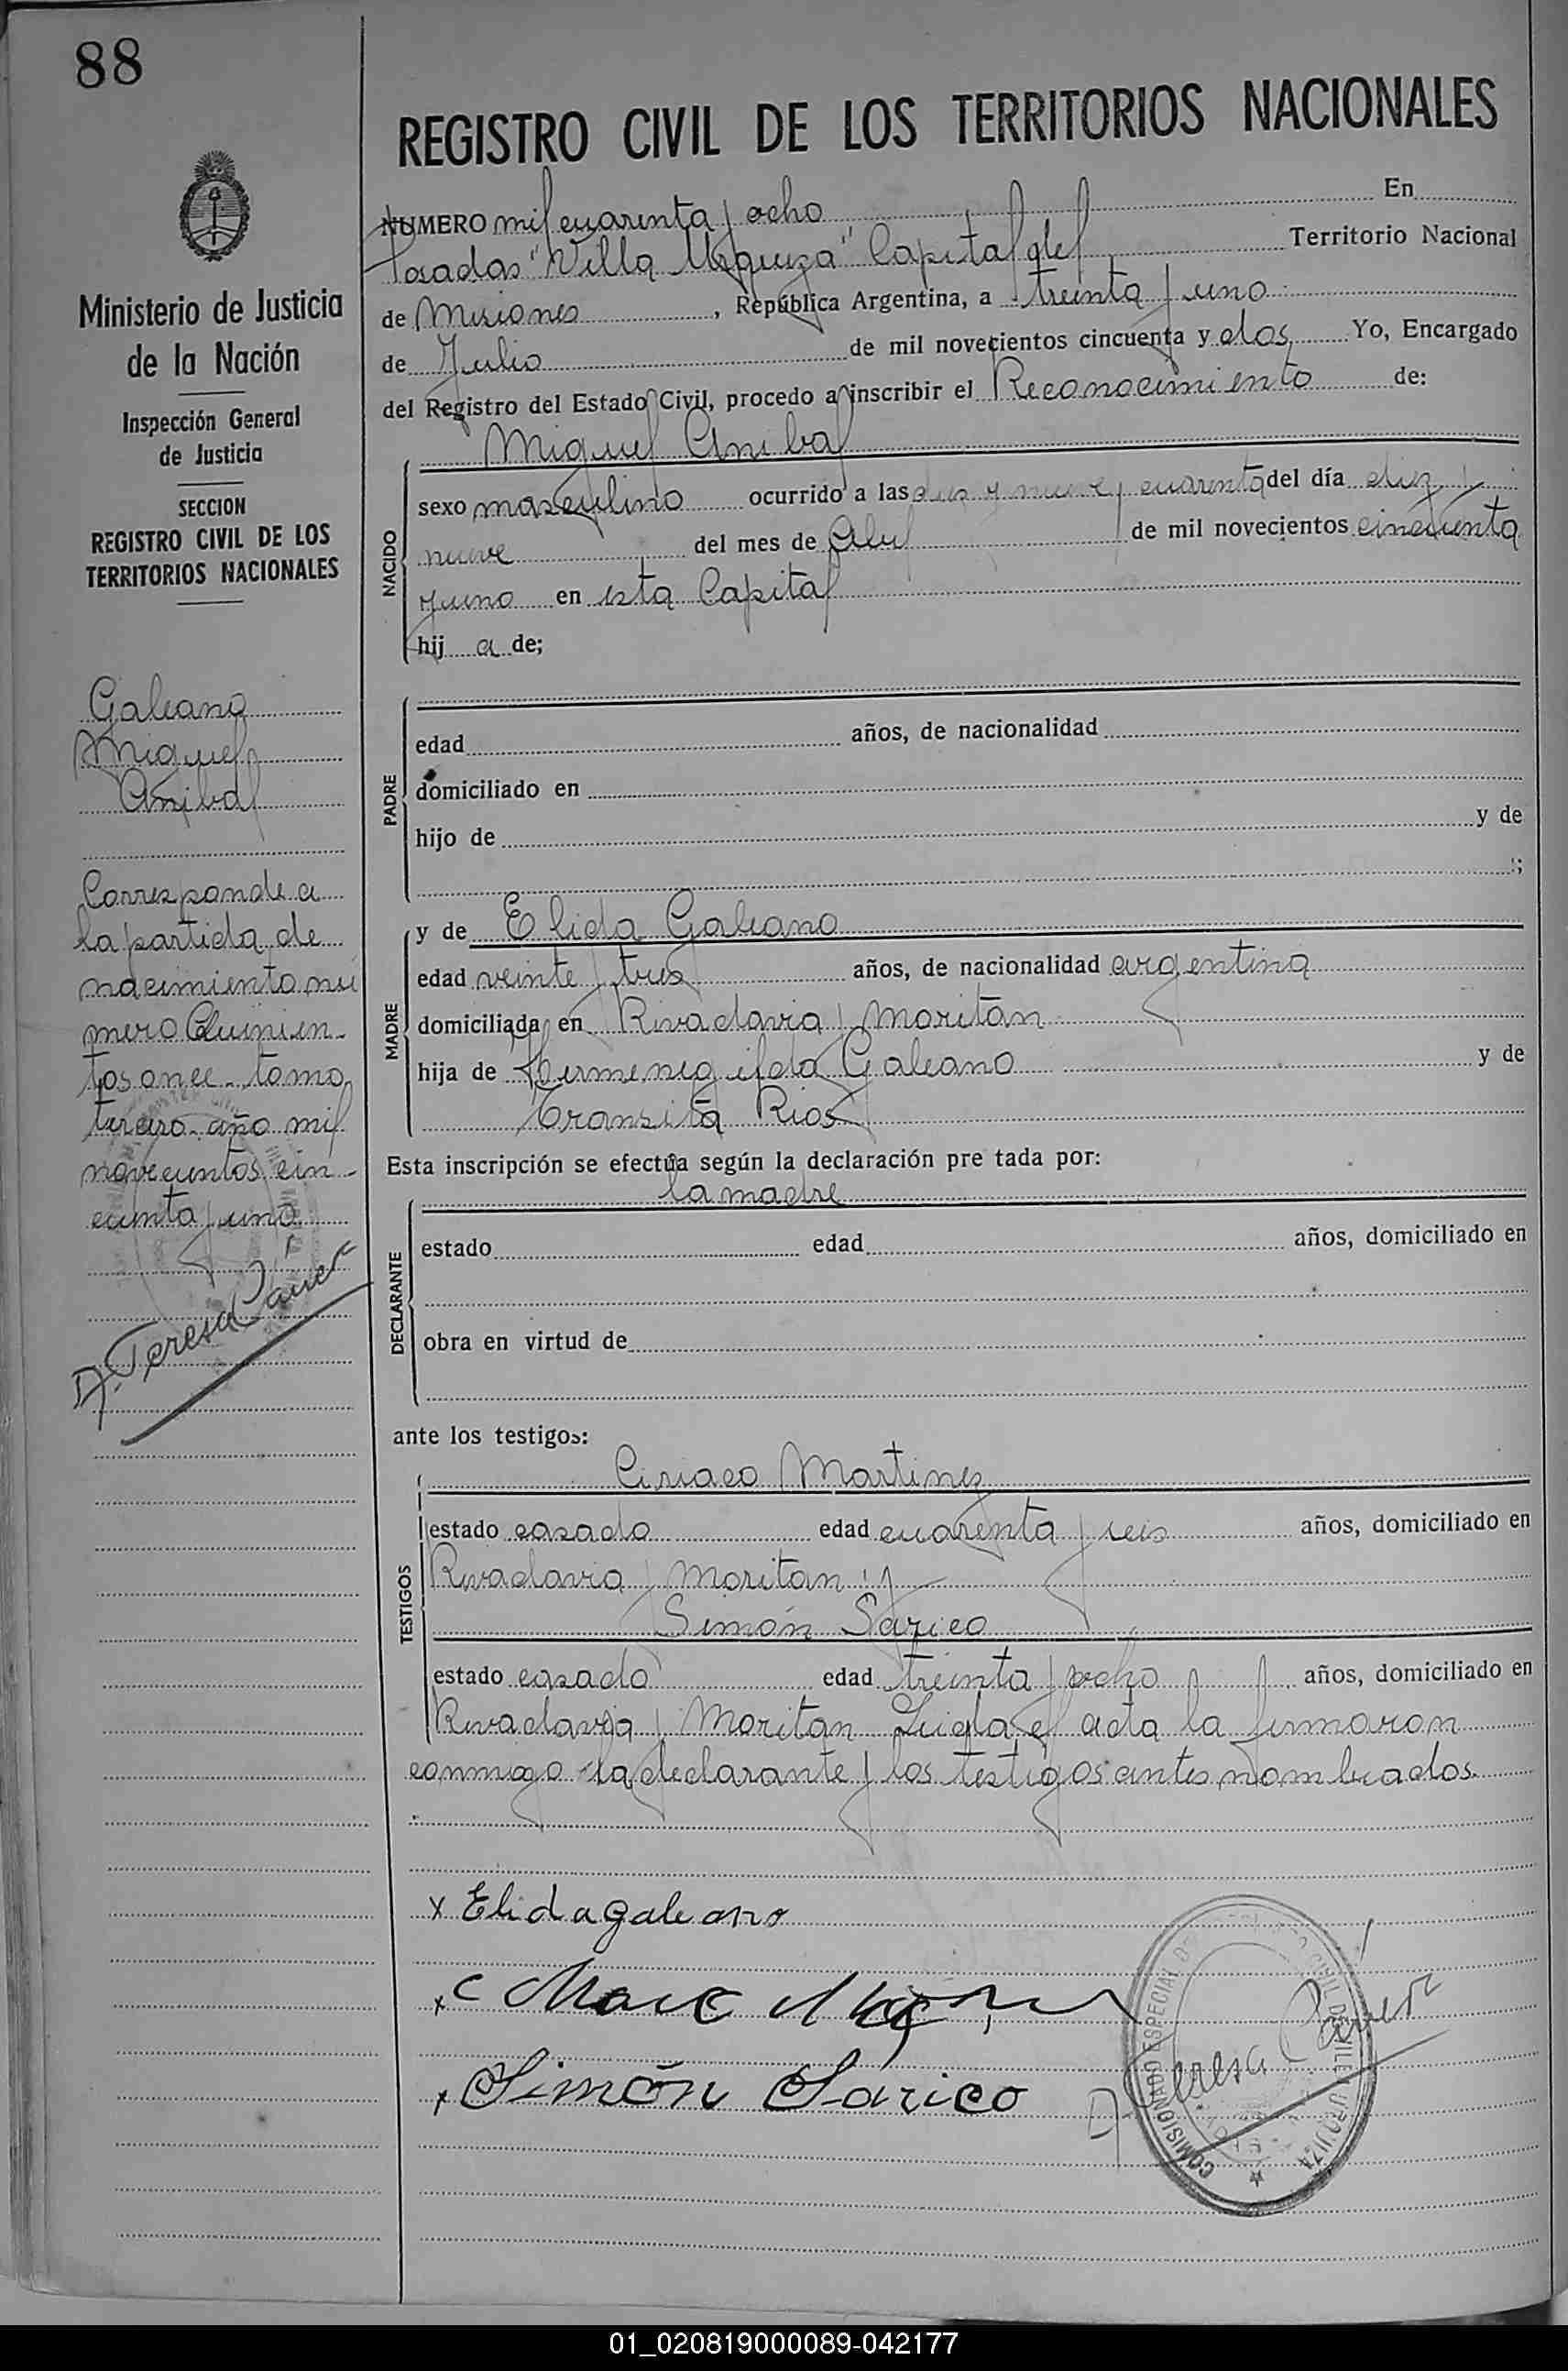 88
REGISTRO CIVIL DE LOS TERRITORIOS NACIONALES
NUMERO mil cuarenta y ocho En
Posadas "Villa Urquiza" Capital del Territorio Nacional
de Misiones, República Argentina, a treinta y uno
de Julio de mil novecientos cincuenta y dos Yo, Encargado
del Registro del Estado Civil, procedo a inscribir el Reconocimiento de:
Miguel Anibal
NACIDO
sexo masculino ocurrido a las diez y nueve y cuarenta del día diez y
nueve del mes de Abril de mil novecientos cincuenta
y uno en esta Capital
hij a de;
PADRE
edad años, de nacionalidad
domiciliado en
hijo de y de
;
MADRE
y de Elida Galeano
edad veinte y tres años, de nacionalidad argentina
domiciliada en Rivadavia y Moritán
hija de Hermenegilda Galeano y de
Transita Rios
Esta inscripción se efectúa según la declaración pre tada por:
la madre
DECLARANTE
estado edad años, domiciliado en
obra en virtud de
ante los testigos:
TESTIGOS
Ciriaco Martinez
estado casado edad cuarenta y seis años, domiciliado en
Rivadavia y Moritan y
Simón Sarico
estado casado edad treinta y ocho años, domiciliado en
Rivadavia y Moritan Leida el acta la firmaron
conmigo la declarante y los testigos antes nombrados.
x Elida galeano
x Simón Sarico
Teresa
COMISIONADO ESPECIAL
Ministerio de Justicia
de la Nación
Inspección General
de Justicia
SECCION
REGISTRO CIVIL DE LOS
TERRITORIOS NACIONALES
Galeano
Miguel
Anibal
Corresponde a
la partida de
nacimiento nú
mero Quinien-
tos once - tomo
tercero - año mil
novecientos cin-
cuenta y uno
Teresa
01_020819000089-042177